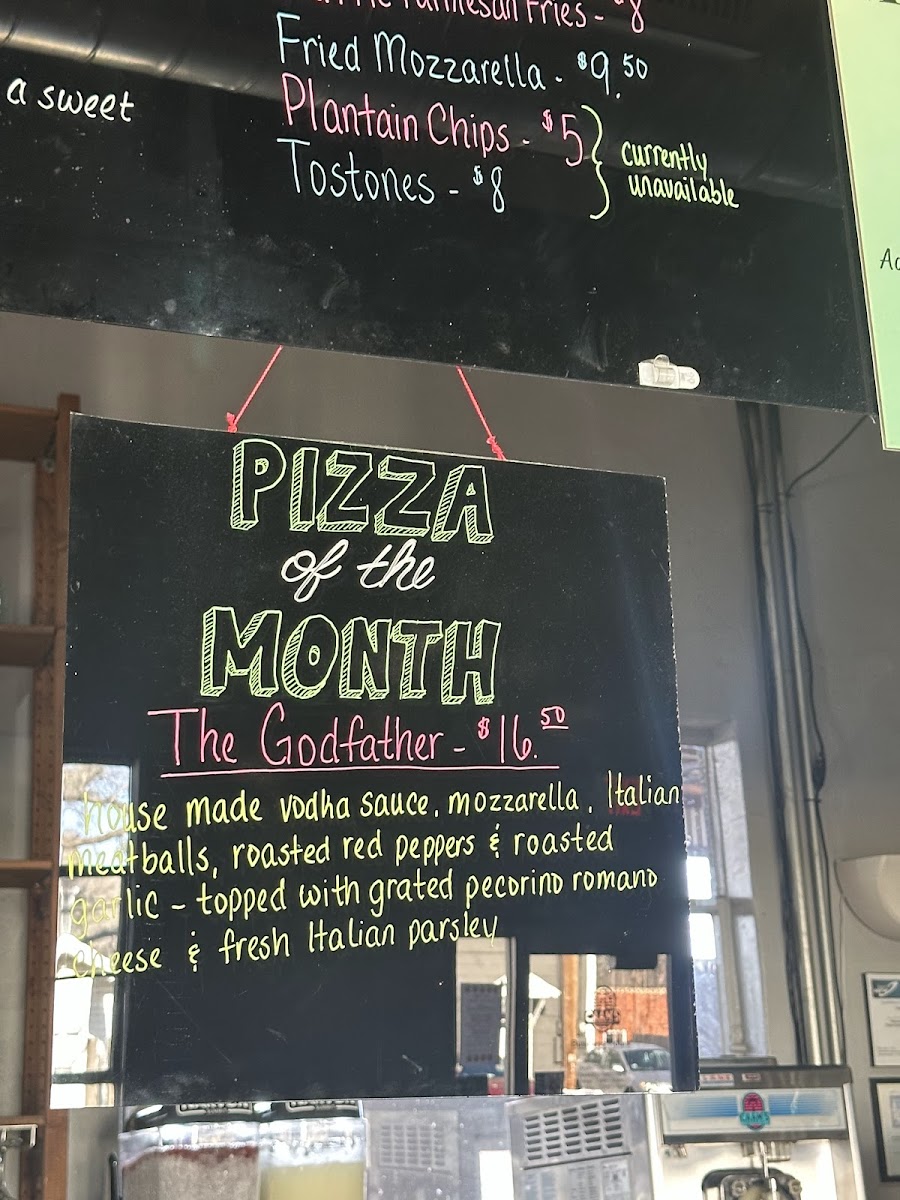 Parmesan Fries - $8
Fried Mozzarella - $9.50
a sweet
Plantain Chips - $5
Tostones - $8
currently
unavailable
PIZZA
of the
MONTH
The Godfather - $16.50
house made vodha sauce, mozzarella, Italian
meatballs, roasted red peppers & roasted
garlic - topped with grated pecorino romano
cheese & fresh Italian parsley